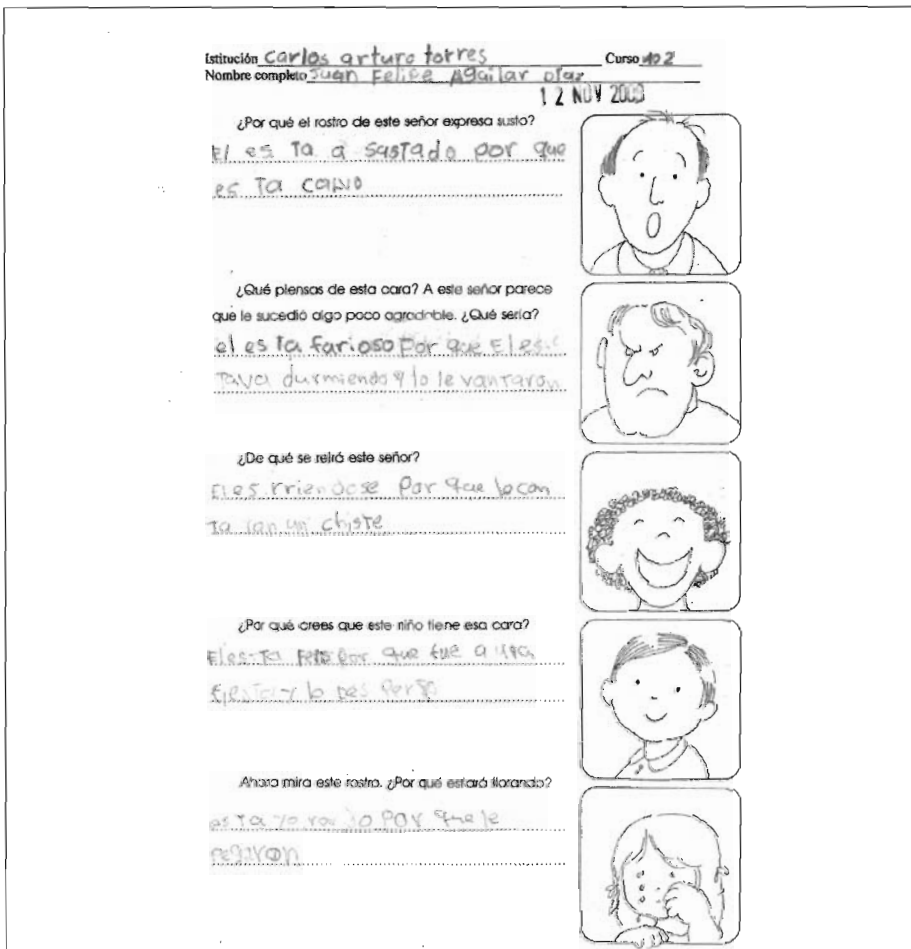 Istitución Carlos arturo torres Curso 102
Nombre completo Juan Felipe Aguilar Diaz
12 NOV 2003
¿Por qué el rostro de este señor expresa susto?
El es Ta a sasTado por que
es Ta calvo
¿Qué piensas de esta cara? A este señor parece
que le sucedió algo poco agradable. ¿Qué sería?
el es Ta farioso por que El es
Tava durmiendo y lo le vanTaron
¿De qué se reirá este señor?
El es rriendose Por que le con
Ta ran un chisTe
¿Por qué crees que este niño tiene esa cara?
El es Ta Feliz Por que fue a una
fiesTa y lo
Ahora mira este rostro. ¿Por qué estará llorando?
es Ta yo ran do POr que le
pegaron